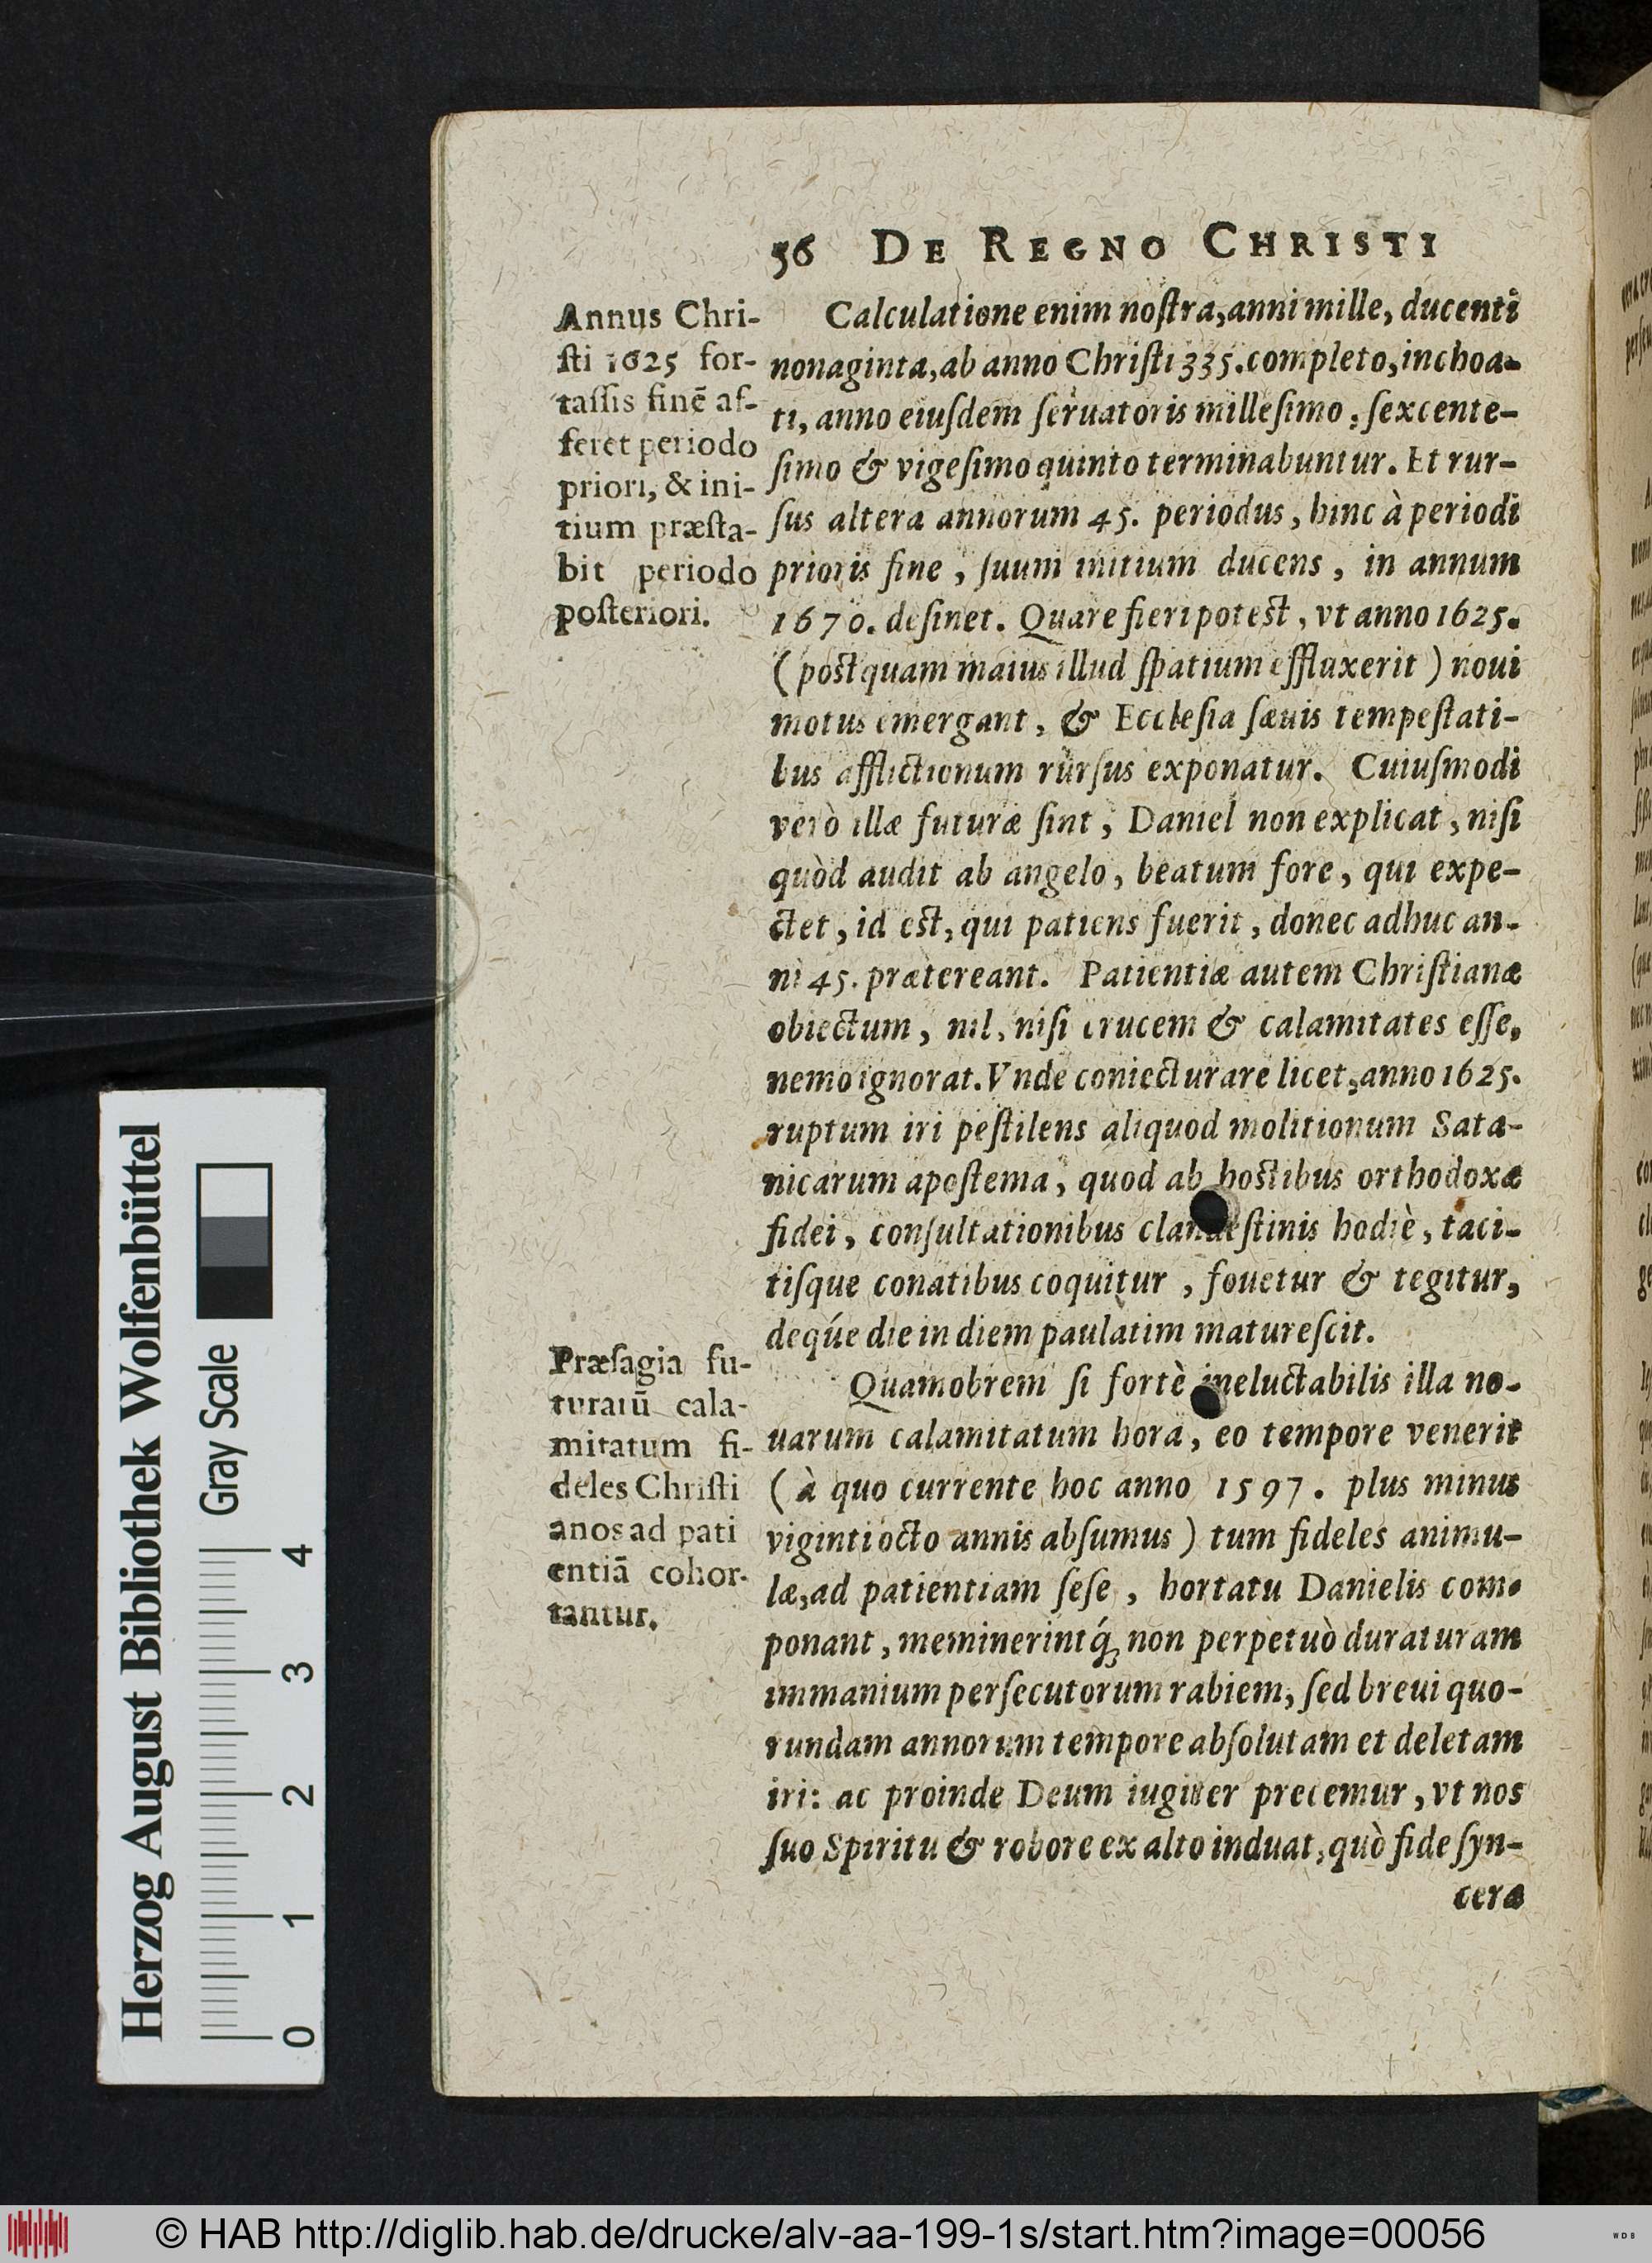 56 DE REGNO CHRISTI
Annus Chri-
ſti 1625 for-
taſſis finē af-
feret periodo
priori, & ini-
tium præſta-
bit periodo
poſteriori.
Calculatione enim noſtra, anni mille, ducenti
nonaginta, ab anno Chriſti 335. completo, inchoa-
ti, anno eiuſdem ſeruatoris milleſimo, ſexcente-
ſimo & vigeſimo quinto terminabuntur. Et rur-
ſus altera annorum 45. periodus, hinc à periodi
prioris fine, ſuum initium ducens, in annum
1670. deſinet. Quare fieri poteſt, vt anno 1625.
(poſtquam maius illud ſpatium effluxerit) noui
motus emergant, & Eccleſia ſæuis tempeſtati-
bus afflictionum rurſus exponatur. Cuiuſmodi
verò illæ futuræ ſint, Daniel non explicat, niſi
quòd audit ab angelo, beatum fore, qui expe-
ctet, id eſt, qui patiens fuerit, donec adhuc an-
ni 45. prætereant. Patientiæ autem Chriſtianæ
obiectum, nil, niſi crucem & calamitates eſſe,
nemo ignorat. Vnde coniecturare licet, anno 1625.
ruptum iri peſtilens aliquod molitionum Sata-
nicarum apoſtema, quod ab hoſtibus orthodoxæ
fidei, conſultationibus clandeſtinis hodiè, taci-
tiſque conatibus coquitur, fouetur & tegitur,
deqúe die in diem paulatim matureſcit.
Præſagia fu-
turarū cala-
mitatum fi-
deles Chriſti
anos ad pati
entiā cohor-
tantur.
Quamobrem ſi fortè ineluctabilis illa no-
uarum calamitatum hora, eo tempore venerit
(à quo currente hoc anno 1597. plus minus
viginti octo annis abſumus) tum fideles animu-
læ, ad patientiam ſeſe, hortatu Danielis com-
ponant, meminerintq́; non perpetuò duraturam
immanium perſecutorum rabiem, ſed breui quo-
rundam annorum tempore abſolutam et deletam
iri: ac proinde Deum iugiter precemur, vt nos
ſuo Spiritu & robore ex alto induat, quò fide ſyn-
cera
Herzog August Bibliothek Wolfenbüttel
Gray Scale
0 1 2 3 4
© HAB http://diglib.hab.de/drucke/alv-aa-199-1s/start.htm?image=00056
WDB